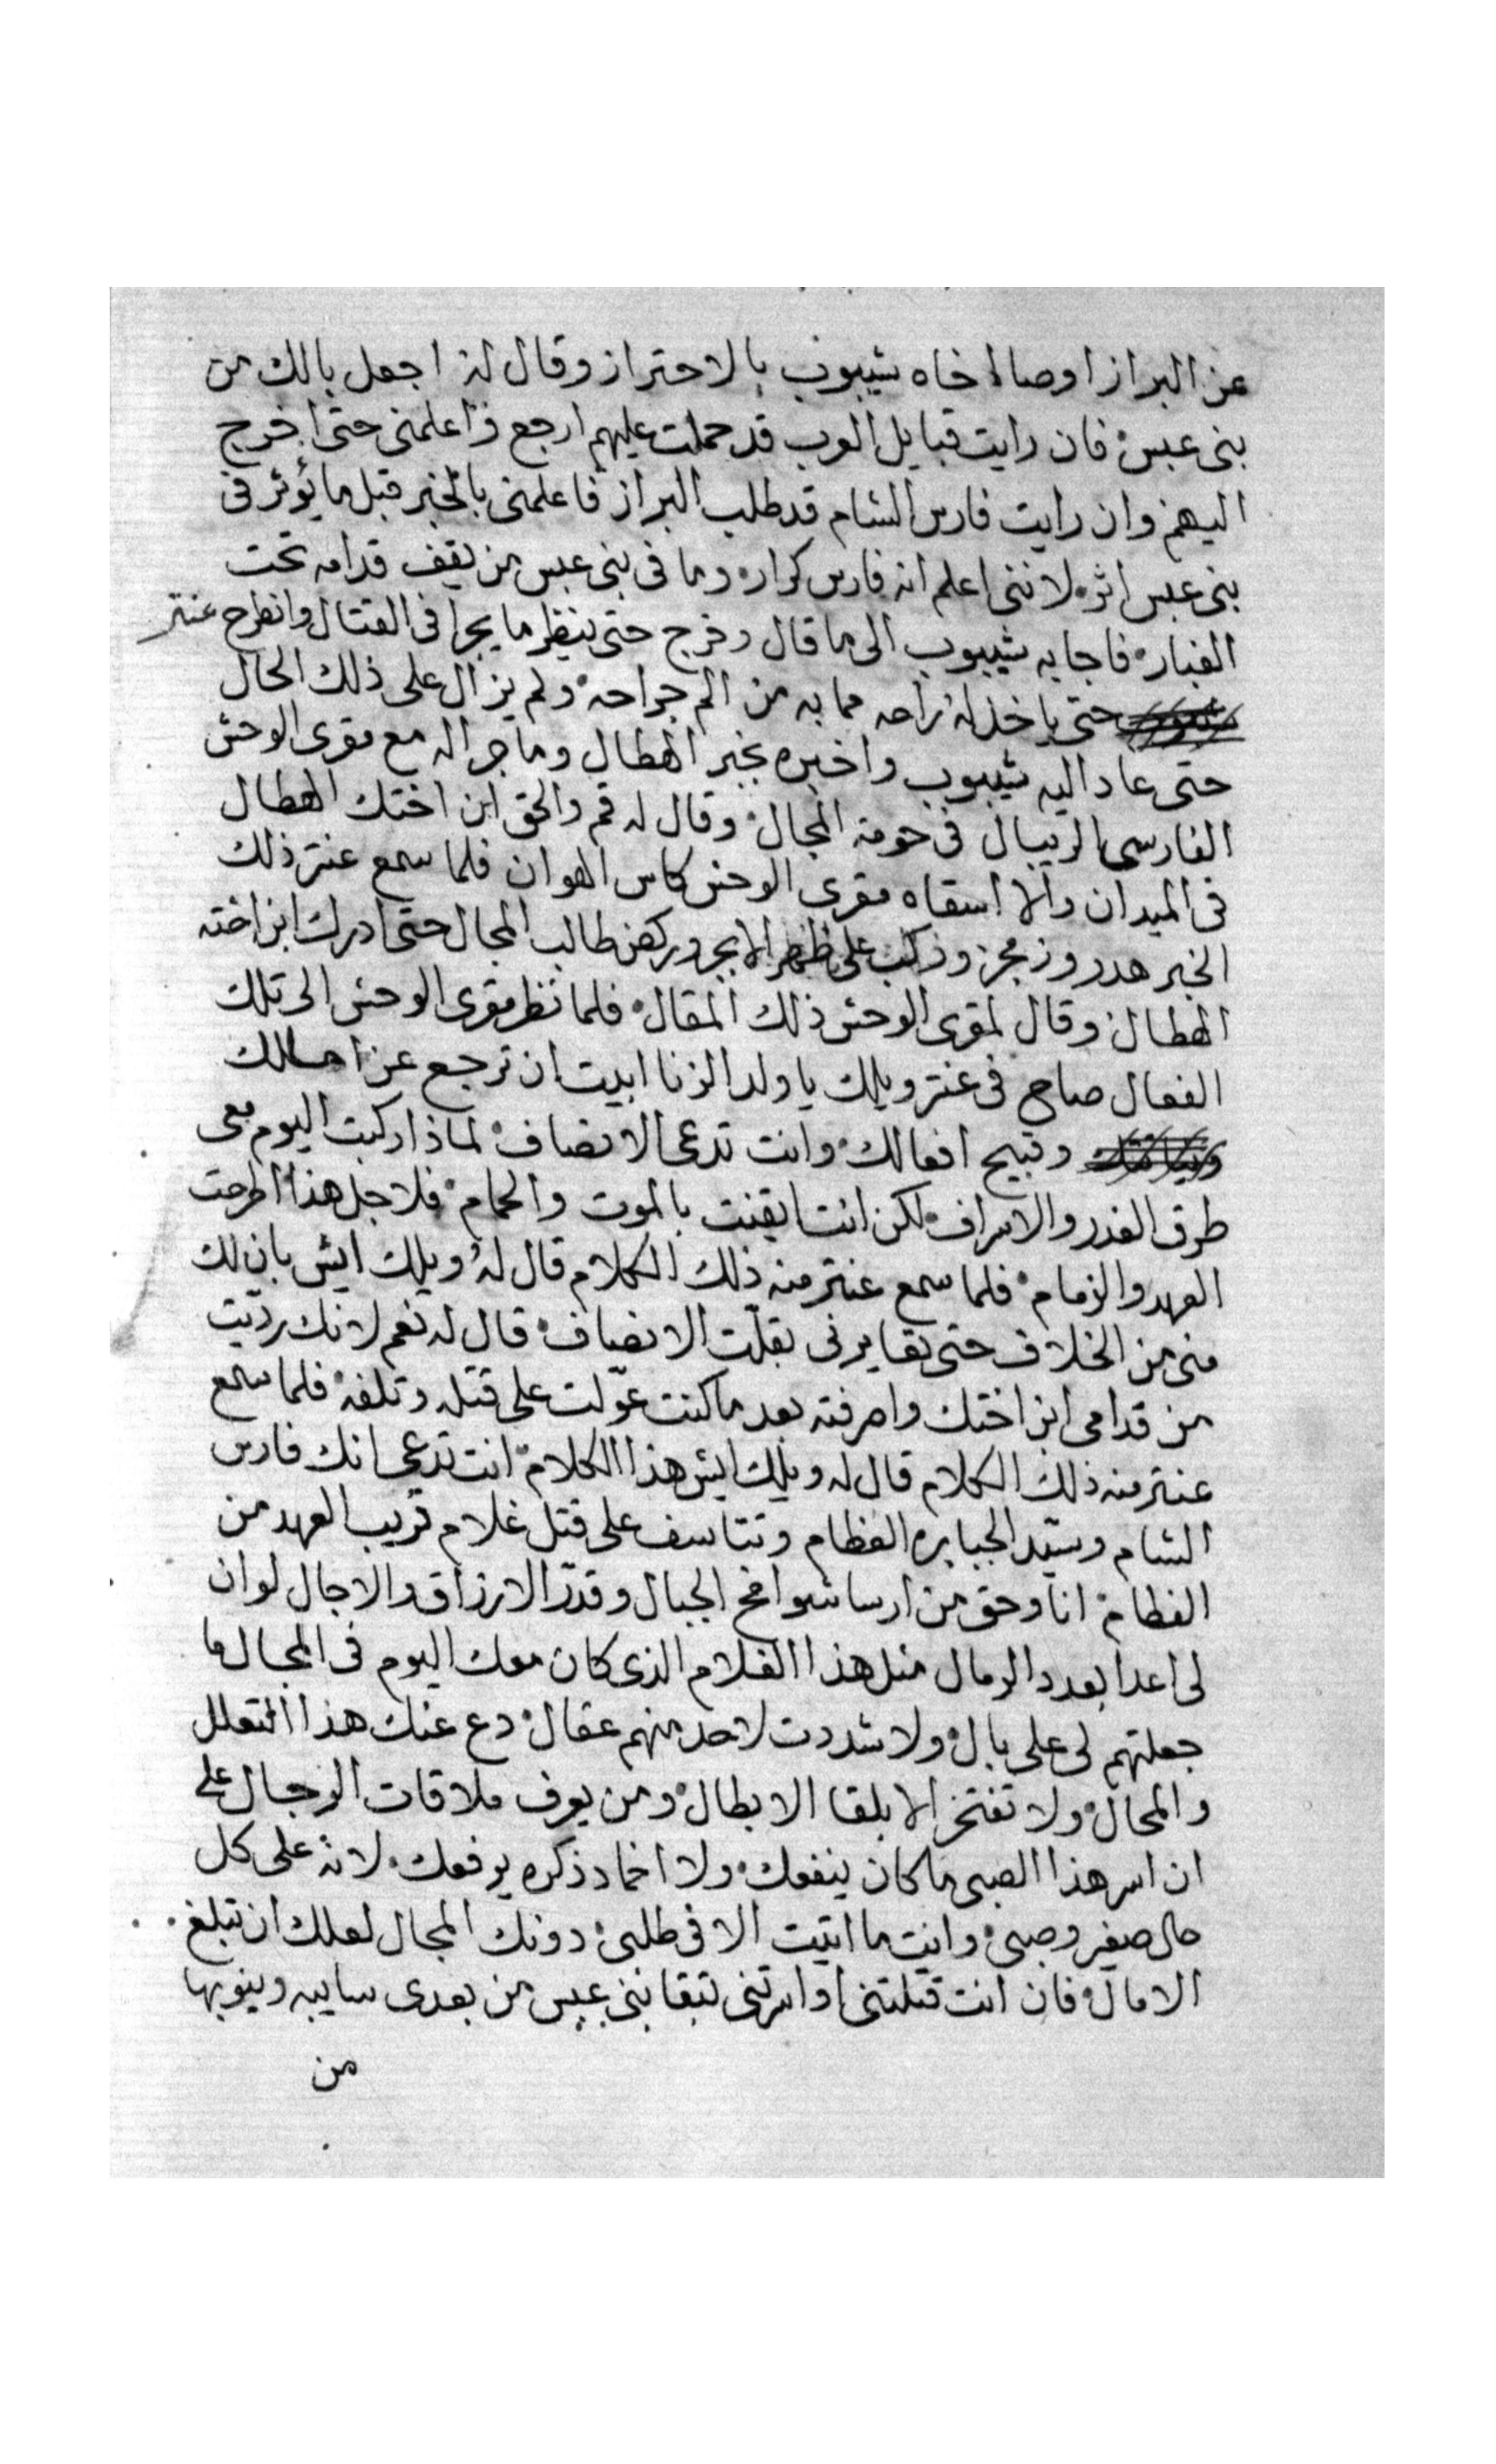 عن البراز اوصا اخاه شيبوب بالاحتراز وقال له اجعل بالك من
بنى عبس فان رايت قبايل العرب قد حملت عليهم ارجع واعلمنى حتى اخرج
اليهم وان رايت فارس الشام قد طلب البراز فاعلمنى بالخبر قبل ما يؤثر فى
بنى عبس اثر لاننى اعلم انه فارس كرار وما فى بنى عبس من يقف قدامه تحت
الغبار فاجابه شيبوب الى ما قال وخرج حتى ينظر ما يجرا فى القتال وانطرح عنتر
حتى ياخذ له راحه مما به من الم جراحه ولم يزال على ذلك الحال
حتى عاد اليه شيبوب واخبره بخبر الهطال وما جرا له مع مقرى الوحش
الفارس الريبال فى حومة المجال وقال له قم والحق ابن اختك الهطال
فى الميدان والا اسقاه مقرى الوحش كاس الهوان فلما سمع عنتر ذلك
الخبر هدر وزمجر وركب على ظهر الابجر وركض طالب المجال حتى ادرك ابن اخته
الهطال وقال لمقرى الوحش ذلك المقال فلما نظر مقرى الوحش الى تلك
الفعال صاح فى عنتر ويلك يا ولد الزنا ابيت ان ترجع عن
وقبيح افعالك وانت تدعى الانصاف لماذا ركبت اليوم معى
طرق الغدر والاسراف لكن انت ايقنت بالموت والحمام فلاجل هذا اطرحت
العهد والزمام فلما سمع عنتر منه ذلك الكلام قال له ويلك ايش بان لك
منى من الخلاف حتى تعايرنى بقلت الانصاف قال له نعم لانك رديت
من قدامى ابن اختك واصرفته بعد ما كنت عوّلت على قتله وتلفه فلما سمع
عنتر منه ذلك الكلام قال له ويلك ايش هذا الكلام انت تدعى انك فارس
الشام وسيّد الجبابره العظام وتتاسف على قتل غلام قريب العهد من
الفطام انا وحق من ارسا شوامخ الجبال وقدّر الارزاق والاجال لو ان
لى اعدا بعدد الرمال مثل هذا الغلام الذى كان معك اليوم فى المجال ما
جعلتهم لى على بال ولا شددت لاحد منهم عقال دع عنك هذا التعلل
والمحال ولا تفتخر الا بلقا الابطال ومن يعرف ملاقات الرجال على
ان اسر هذا الصبى ما كان ينفعك ولا اخماد ذكره يرفعك لانه على كل
حال صغير وصبى وانت ما اتيت الا فى طلبى دونك المجال لعلك ان تبلغ
الامال فان انت قتلتنى او اسرتنى تبقا بنى عبس من بعدى سايبه وينوبها
من